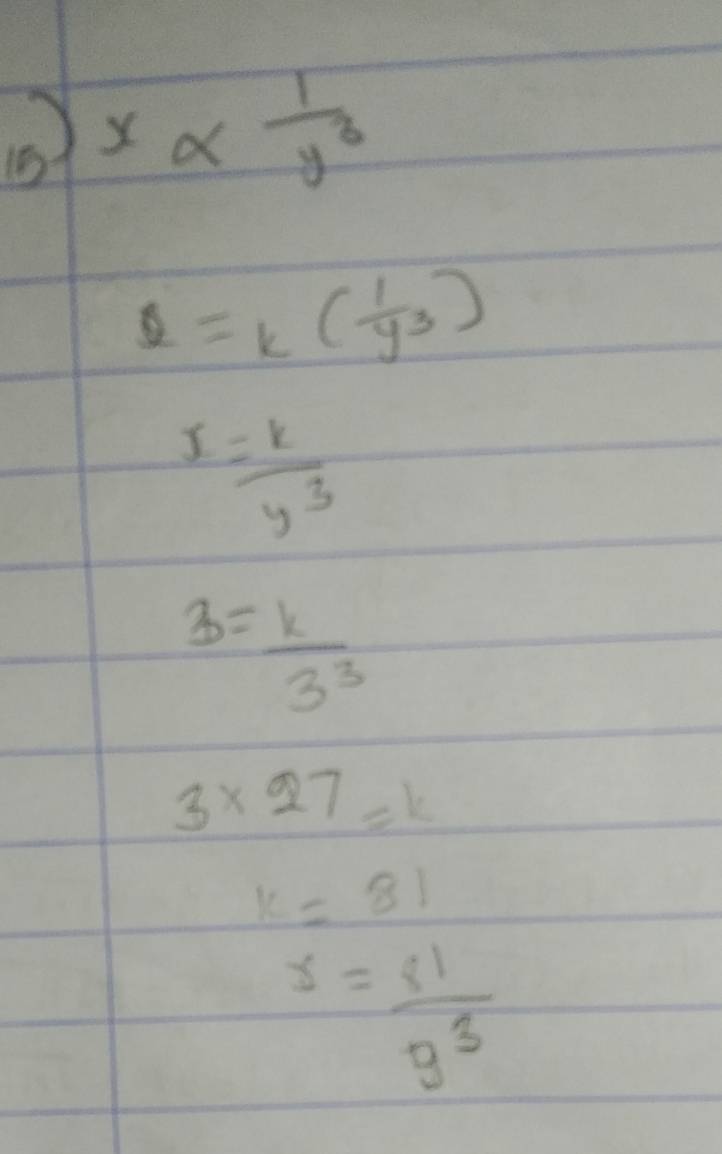 15) x ∝ 1/y³
= k (1/y³)
x = k/y³
3 = k/3³
3 × 27 = k
k = 81
x = 81/y³